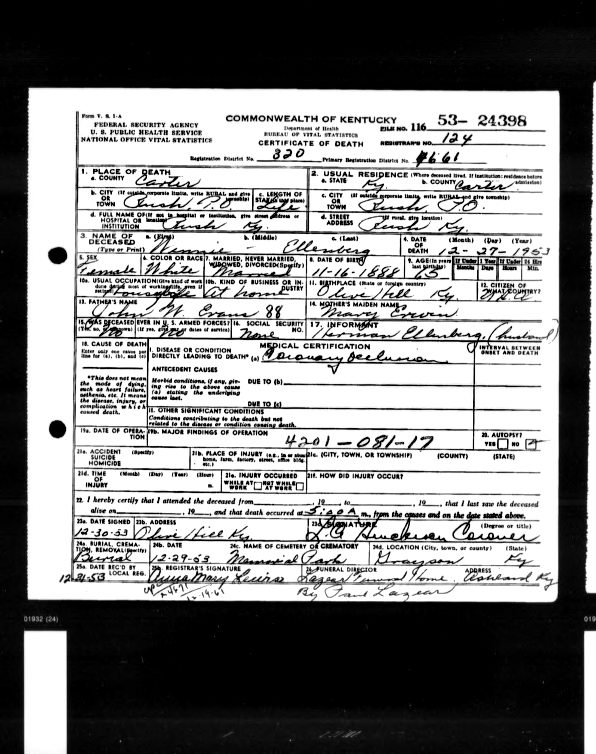 Form V. S. 1-A
FEDERAL SECURITY AGENCY
U. S. PUBLIC HEALTH SERVICE
NATIONAL OFFICE VITAL STATISTICS
COMMONWEALTH OF KENTUCKY
Department of Health
BUREAU OF VITAL STATISTICS
CERTIFICATE OF DEATH
FILE NO. 116 53- 24398
REGISTRAR'S NO. 124
Registration District No. 320 Primary Registration District No. 4661
1. PLACE OF DEATH
a. COUNTY Carter
2. USUAL RESIDENCE (Where deceased lived. If institution: residence before admission)
a. STATE Ky. b. COUNTY Carter
b. CITY (If outside corporate limits, write RURAL and give township) OR TOWN Rush P.O.
c. LENGTH OF STAY (in this place) Life
c. CITY (If outside corporate limits, write RURAL and give township) OR TOWN Rush P.O.
d. FULL NAME OF (If not in hospital or institution, give street address or location) HOSPITAL OR INSTITUTION Rush Ky.
d. STREET ADDRESS (If rural, give location) Rush Ky.
3. NAME OF DECEASED (Type or Print) a. (First) b. (Middle) c. (Last) Ellenberg
4. DATE OF DEATH (Month) (Day) (Year) 12-27-1953
5. SEX Female
6. COLOR OR RACE White
7. MARRIED, NEVER MARRIED, WIDOWED, DIVORCED (Specify) Married
8. DATE OF BIRTH 11-16-1888
9. AGE (In years last birthday) 65 If Under 1 Year Months Days If Under 24 Hrs Hours Min.
10a. USUAL OCCUPATION (Give kind of work done during most of working life, even if retired) Housewife
10b. KIND OF BUSINESS OR INDUSTRY At home
11. BIRTHPLACE (State or foreign country) Olive Hill Ky
12. CITIZEN OF WHAT COUNTRY? USA
13. FATHER'S NAME John W. Evans 88
14. MOTHER'S MAIDEN NAME Mary Erwin
15. WAS DECEASED EVER IN U.S. ARMED FORCES? (Yes, no, or unknown) (If yes, give war or dates of service) No
16. SOCIAL SECURITY NO. None
17. INFORMANT Norman Ellenberg (husband)
18. CAUSE OF DEATH
Enter only one cause per line for (a), (b), and (c)
MEDICAL CERTIFICATION
INTERVAL BETWEEN ONSET AND DEATH
I. DISEASE OR CONDITION DIRECTLY LEADING TO DEATH* (a) Coronary Occlusion
*This does not mean the mode of dying, such as heart failure, asthenia, etc. It means the disease, injury, or complication which caused death.
ANTECEDENT CAUSES
Morbid conditions, if any, giving rise to the above cause (a) stating the underlying cause last.
DUE TO (b)
DUE TO (c)
II. OTHER SIGNIFICANT CONDITIONS
Conditions contributing to the death but not related to the disease or condition causing death.
19a. DATE OF OPERATION
19b. MAJOR FINDINGS OF OPERATION
4201-081-17
20. AUTOPSY? YES NO
21a. ACCIDENT SUICIDE HOMICIDE (Specify)
21b. PLACE OF INJURY (e.g., in or about home, farm, factory, street, office bldg. etc.)
21c. (CITY, TOWN, OR TOWNSHIP) (COUNTY) (STATE)
21d. TIME OF INJURY (Month) (Day) (Year) (Hour) m.
21e. INJURY OCCURRED WHILE AT WORK NOT WHILE AT WORK
21f. HOW DID INJURY OCCUR?
22. I hereby certify that I attended the deceased from , 19 to 19 , that I last saw the deceased
alive on , 19 , and that death occurred at 5:00A m., from the causes and on the date stated above.
23a. DATE SIGNED 12-30-53
23b. ADDRESS Olive Hill Ky.
23c. SIGNATURE (Degree or title) Henderson Coroner
24a. BURIAL, CREMATION, REMOVAL (Specify) Burial
24b. DATE 12-29-53
24c. NAME OF CEMETERY OR CREMATORY Memorial Park
24d. LOCATION (City, town, or county) (State) Grayson Ky
25a. DATE REC'D BY LOCAL REG. 12-31-53
25b. REGISTRAR'S SIGNATURE Anna Mary Lewis
26. FUNERAL DIRECTOR ADDRESS Lazear Funeral Home, Ashland Ky
By Paul Lazear
01932 (24)
019